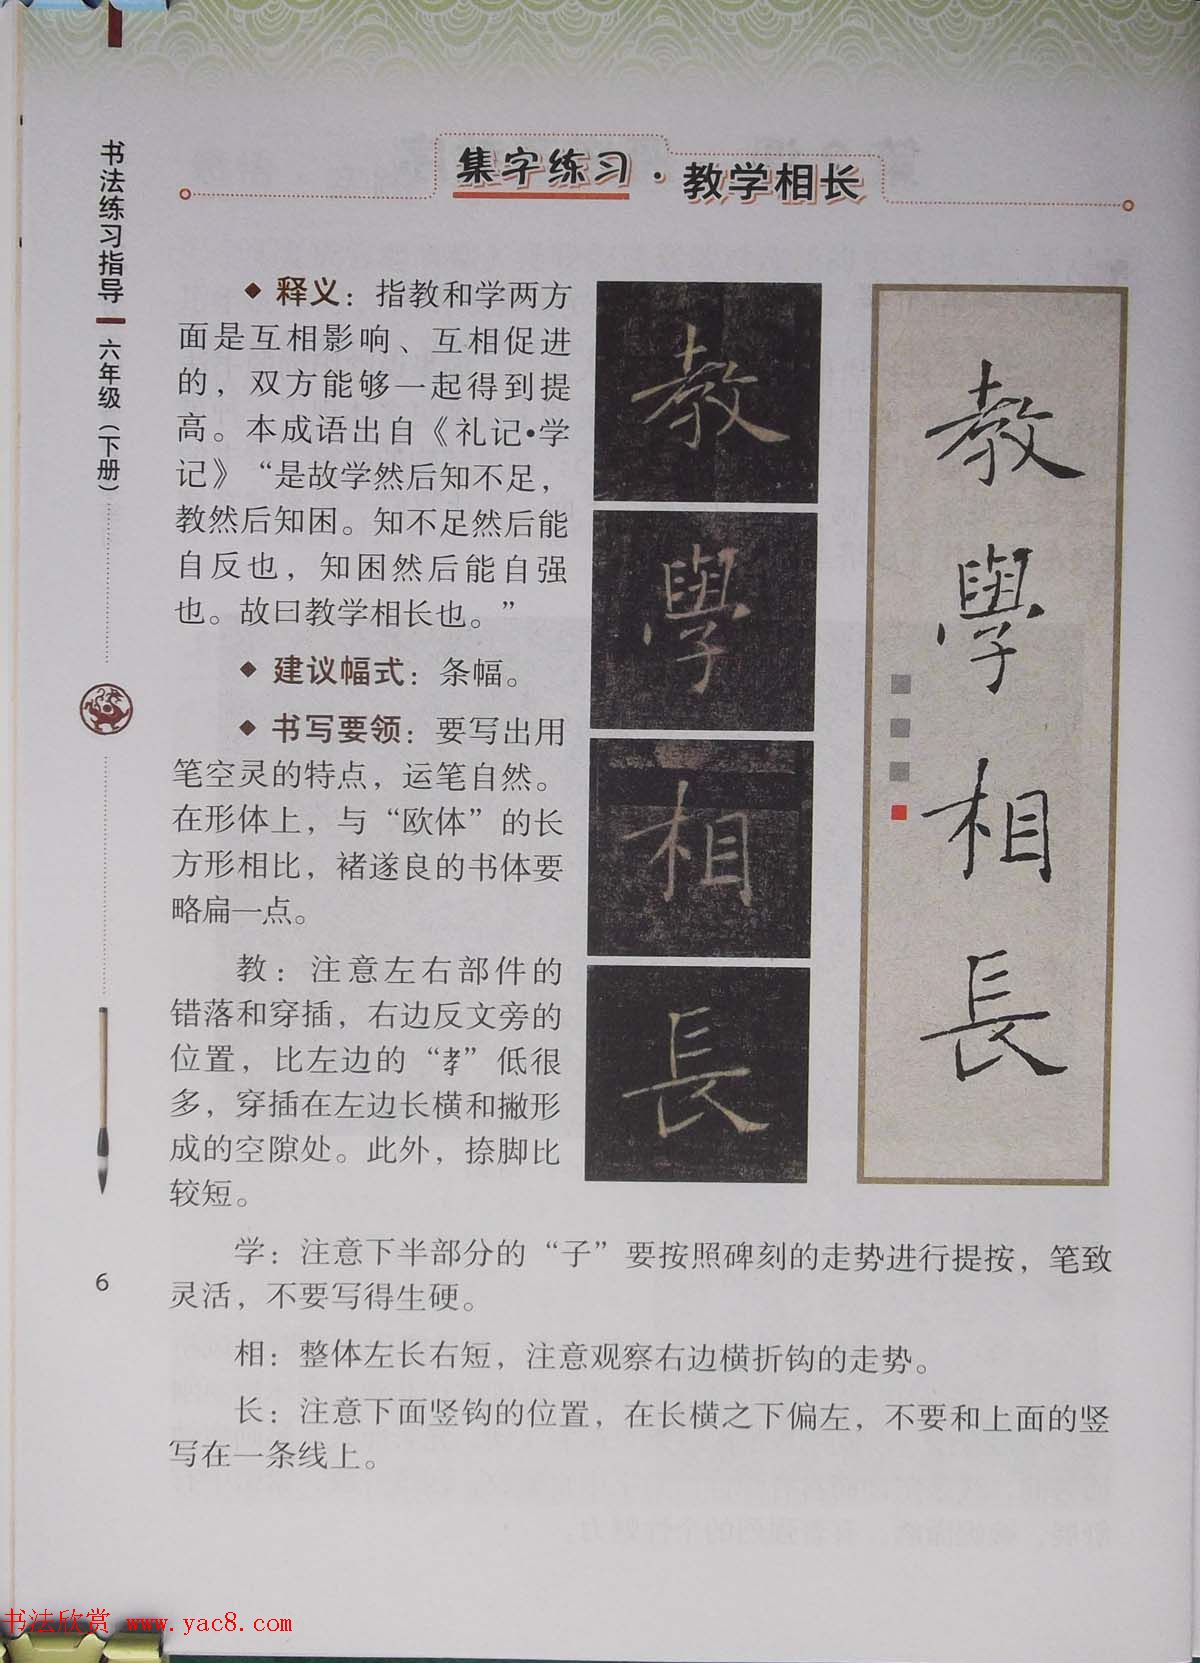 书法练习指导
六年级（下册）
集字练习·教学相长
◆ 释义：指教和学两方
面是互相影响、互相促进
的，双方能够一起得到提
高。本成语出自《礼记•学
记》“是故学然后知不足，
教然后知困。知不足然后能
自反也，知困然后能自强
也。故曰教学相长也。”
◆ 建议幅式：条幅。
◆ 书写要领：要写出用
笔空灵的特点，运笔自然。
在形体上，与“欧体”的长
方形相比，褚遂良的书体要
略扁一点。
教：注意左右部件的
错落和穿插，右边反文旁的
位置，比左边的“孝”低很
多，穿插在左边长横和撇形
成的空隙处。此外，捺脚比
较短。
教
學
相
長
教
學
相
長
学：注意下半部分的“子”要按照碑刻的走势进行提按，笔致
灵活，不要写得生硬。
相：整体左长右短，注意观察右边横折钩的走势。
长：注意下面竖钩的位置，在长横之下偏左，不要和上面的竖
写在一条线上。
6
书法欣赏 www.yac8.com